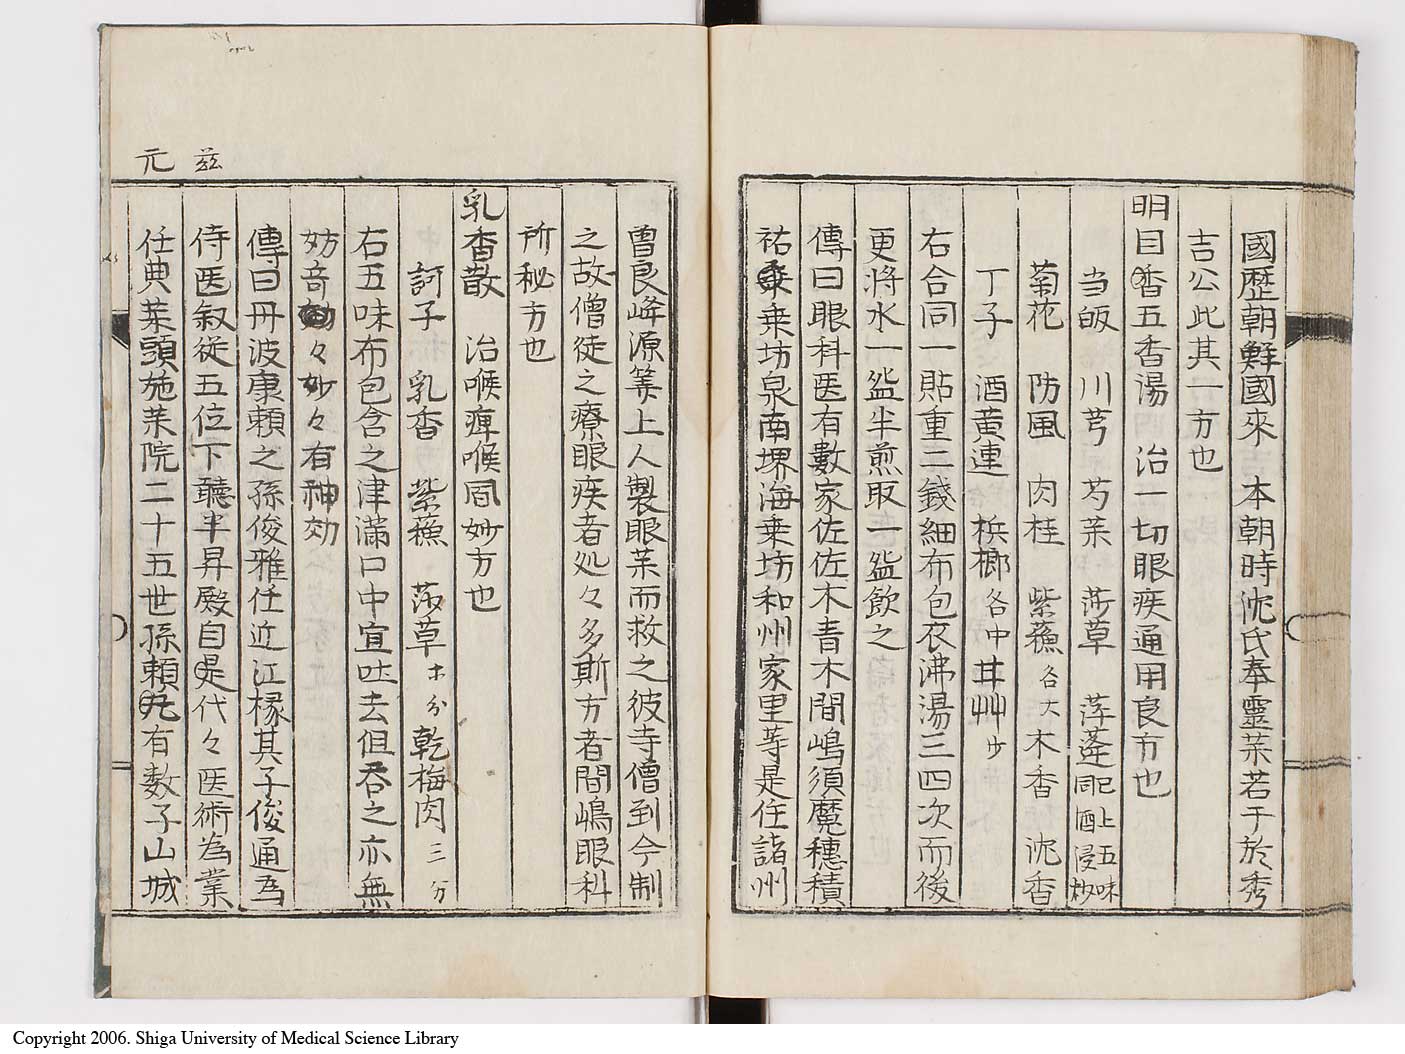 國歴朝鮮國來 本朝時沈氏奉靈茱若于於秀
吉公此其一方也
明目香五香湯 治一切眼疾通用良方也
当皈 川芎 芍茱 莎草 莑蓬 昵上五味同酒浸炒
菊花 防風 肉桂 紫蘓 各大 木香 沈香
丁子 酒黄連 梹榔 各中 甘艸 少
右合同一貼重二錢細布包衣沸湯三四次而後
更將水一盌半煎取一盌飲之
傳曰眼科医有數家佐佐木青木間嶋須魔穗積
祐乗乗坊泉南堺海乗坊和州家里等是住諸州
曽良峰源筭上人製眼茱而救之彼寺僧到今制
之故僧徒之療眼疾者処々多斯方者間嶋眼科
所秘方也
乳香散 治喉痺喉風妙方也
訶子 乳香 紫蘓 莎草 十分 乾梅肉 三分
右五味布包含之津滿口中宣吐去但吞之亦無
妨奇々妙々有神効
傳曰丹波康頼之孫俊雅任近江掾其子俊通為
侍医叙従五位下聽半昇殿自是代々医術為業
任典茱頭施茱院二十五世孫頼元有数子山城
玆
元
Copyright 2006. Shiga University of Medical Science Library